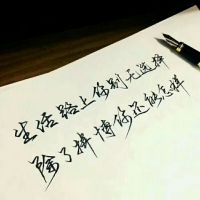 生活路上你别无选择
除了拼搏你还能怎样